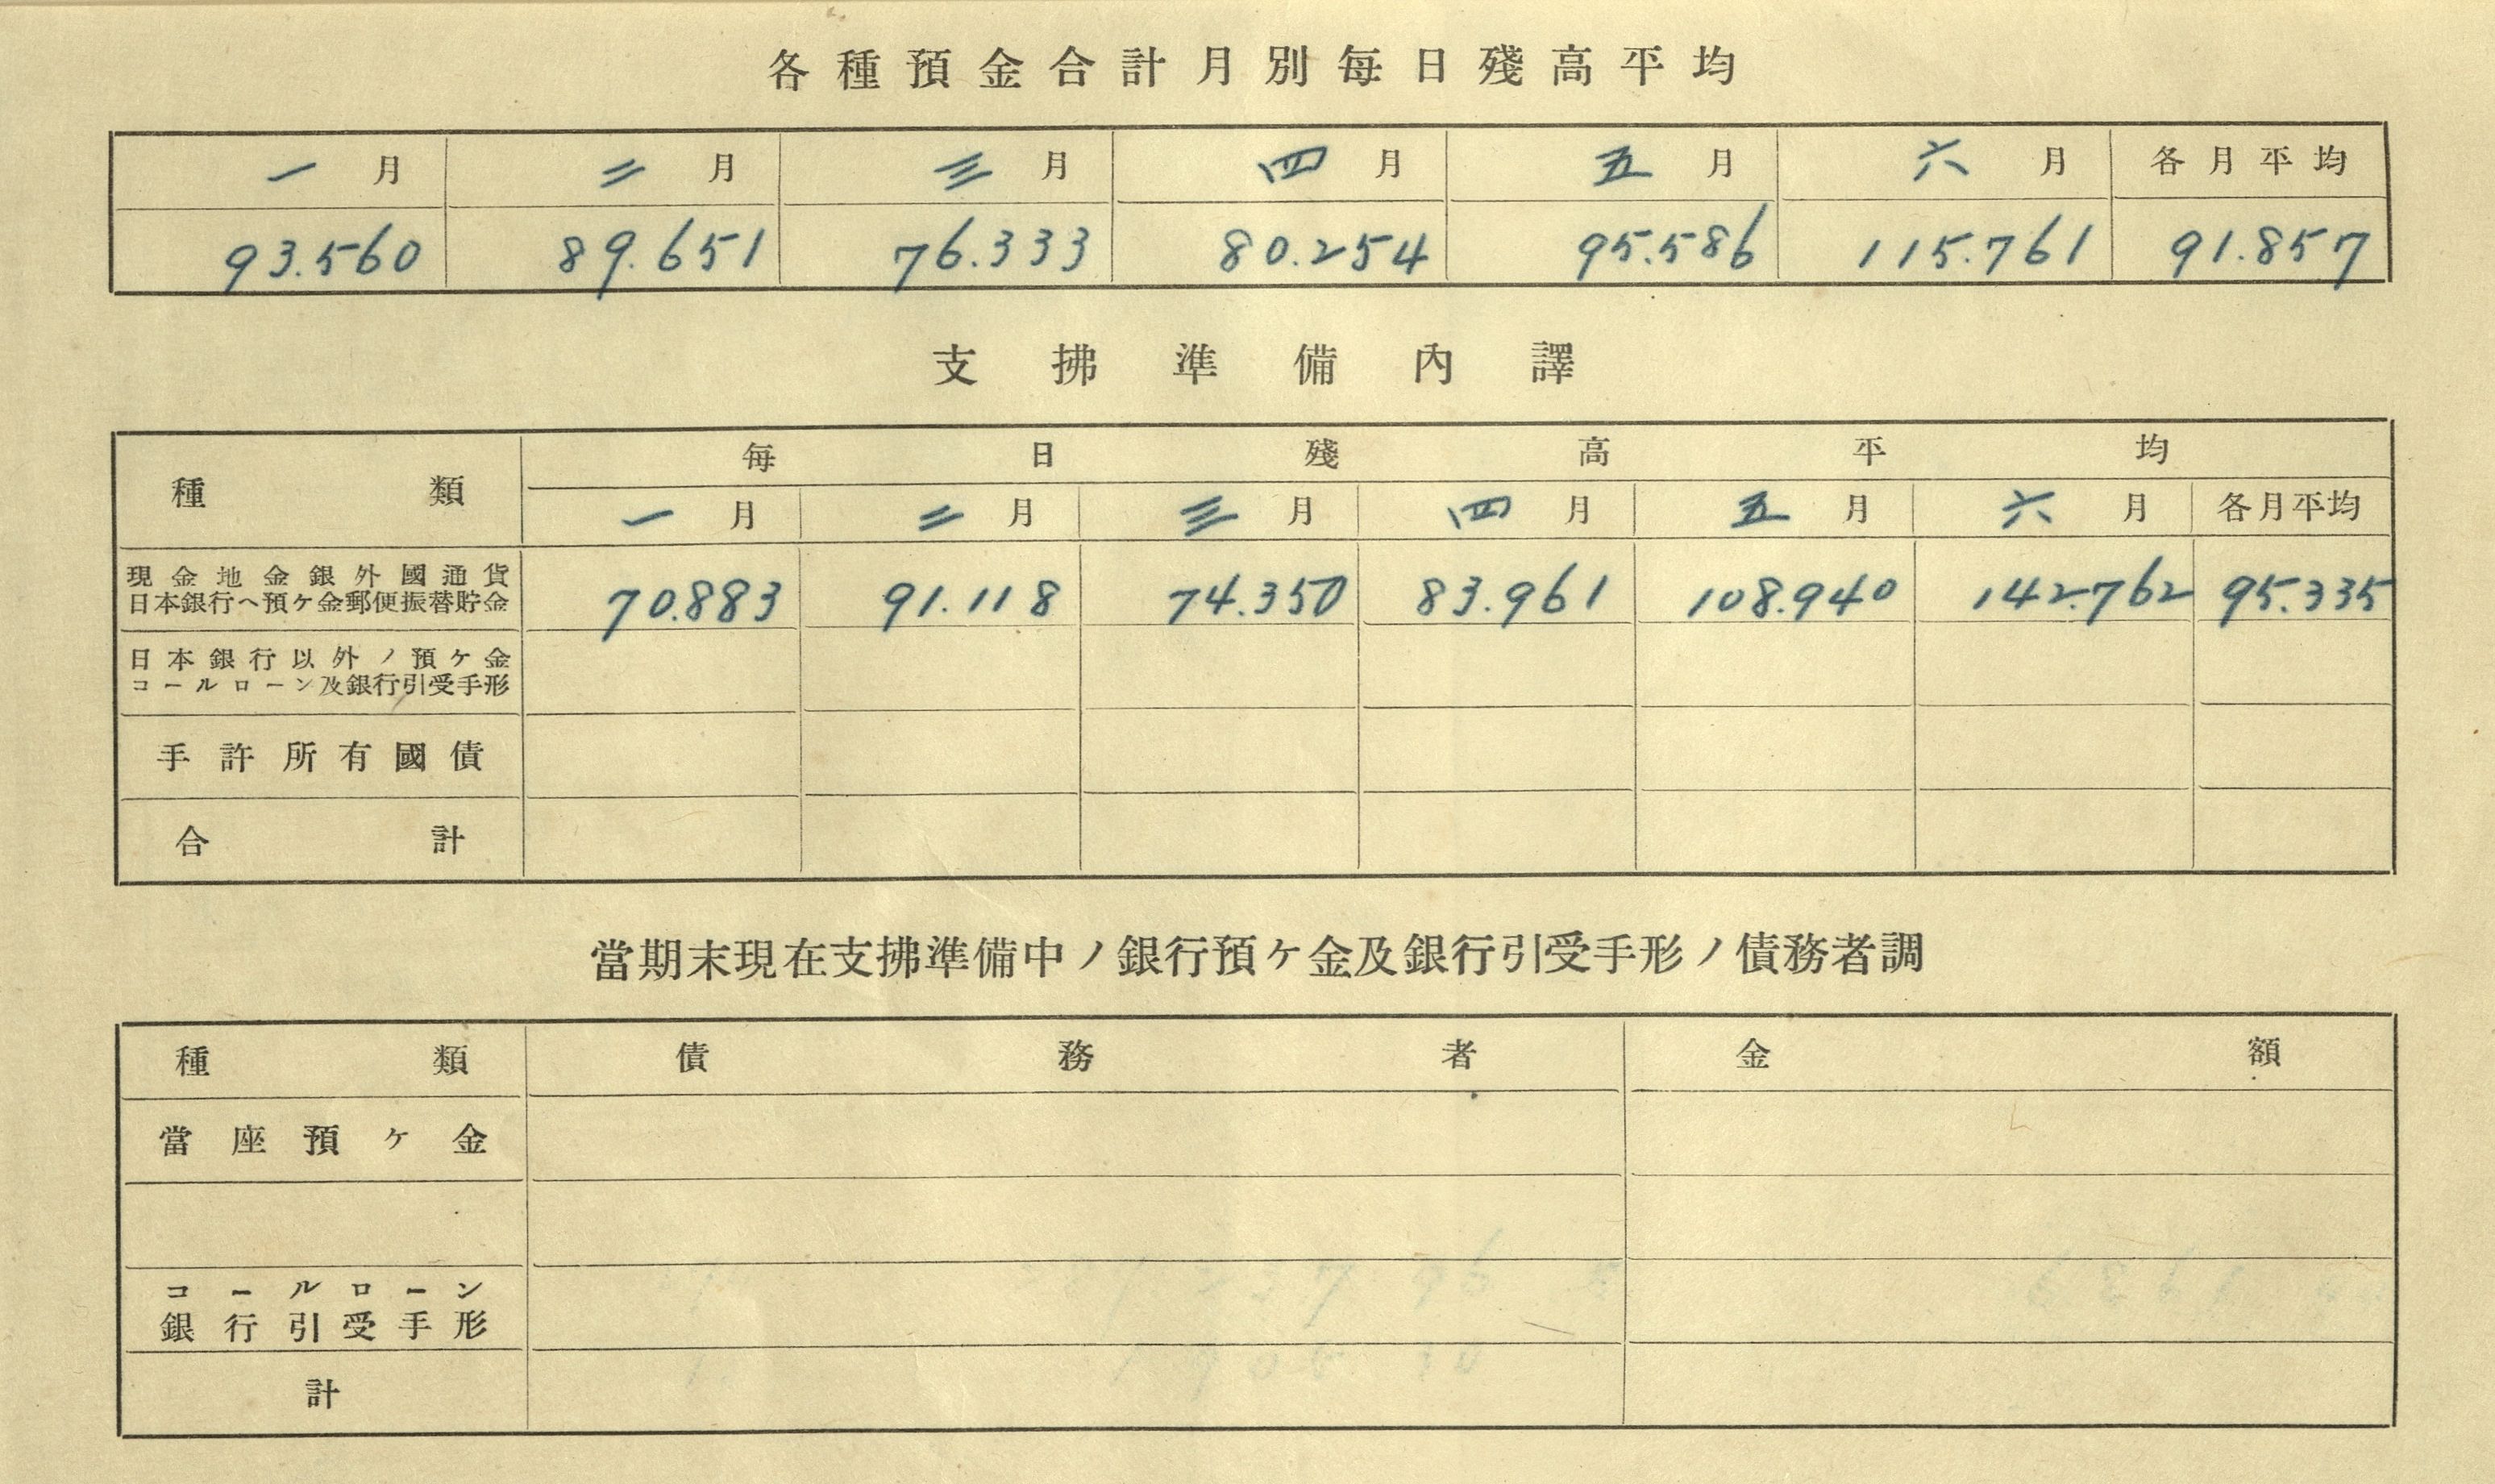 各種預金合計月別每日殘高平均
一月 二月 三月 四月 五月 六月 各月平均
93.560 89.651 76.333 80.254 95.586 115.761 91.857
支拂準備內譯
種類 每日殘高平均
一月 二月 三月 四月 五月 六月 各月平均
現金地金銀外國通貨
日本銀行へ預ケ金郵便振替貯金
70.883 91.118 74.350 83.961 108.940 142.762 95.335
日本銀行以外ノ預ケ金
コールローン及銀行引受手形
手許所有國債
合計
當期末現在支拂準備中ノ銀行預ケ金及銀行引受手形ノ債務者調
種類 債務者 金額
當座預ケ金
コールローン
銀行引受手形
計